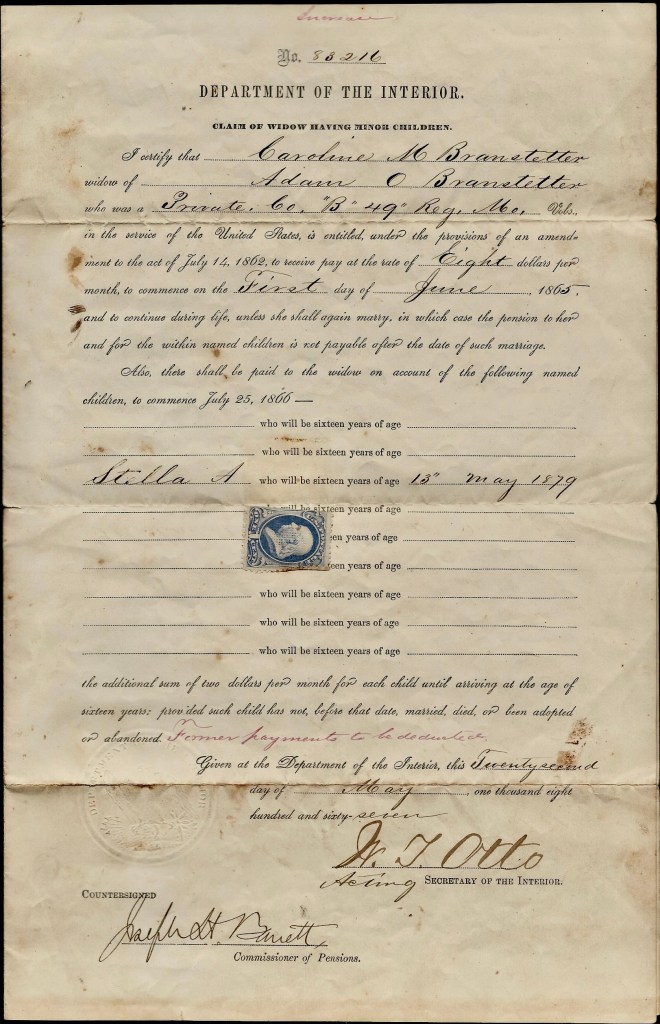 Increase
No. 83216
DEPARTMENT OF THE INTERIOR.
CLAIM OF WIDOW HAVING MINOR CHILDREN.
I certify that Caroline M Branstetter
widow of Adam O Branstetter
who was a Private. Co. "B" 49" Reg. Mo. Vols.,
in the service of the United States, is entitled, under the provisions of an amend-
ment to the act of July 14, 1862, to receive pay at the rate of Eight dollars per
month, to commence on the First day of June, 1865,
and to continue during life, unless she shall again marry, in which case the pension to her
and for the within named children is not payable after the date of such marriage.
Also, there shall be paid to the widow on account of the following named
children, to commence July 25, 1866—
who will be sixteen years of age
who will be sixteen years of age
Stella A who will be sixteen years of age 13" May 1879
who will be sixteen years of age
een years of age
teen years of age
who will be sixteen years of age
who will be sixteen years of age
who will be sixteen years of age
the additional sum of two dollars per month for each child until arriving at the age of
sixteen years: provided such child has not, before that date, married, died, or been adopted
or abandoned. Former payments to be deducted.
Given at the Department of the Interior, this Twenty second
day of May, one thousand eight
hundred and sixty-seven
W. T. Otto
Acting SECRETARY OF THE INTERIOR.
COUNTERSIGNED
Joseph H. Barrett,
Commissioner of Pensions.